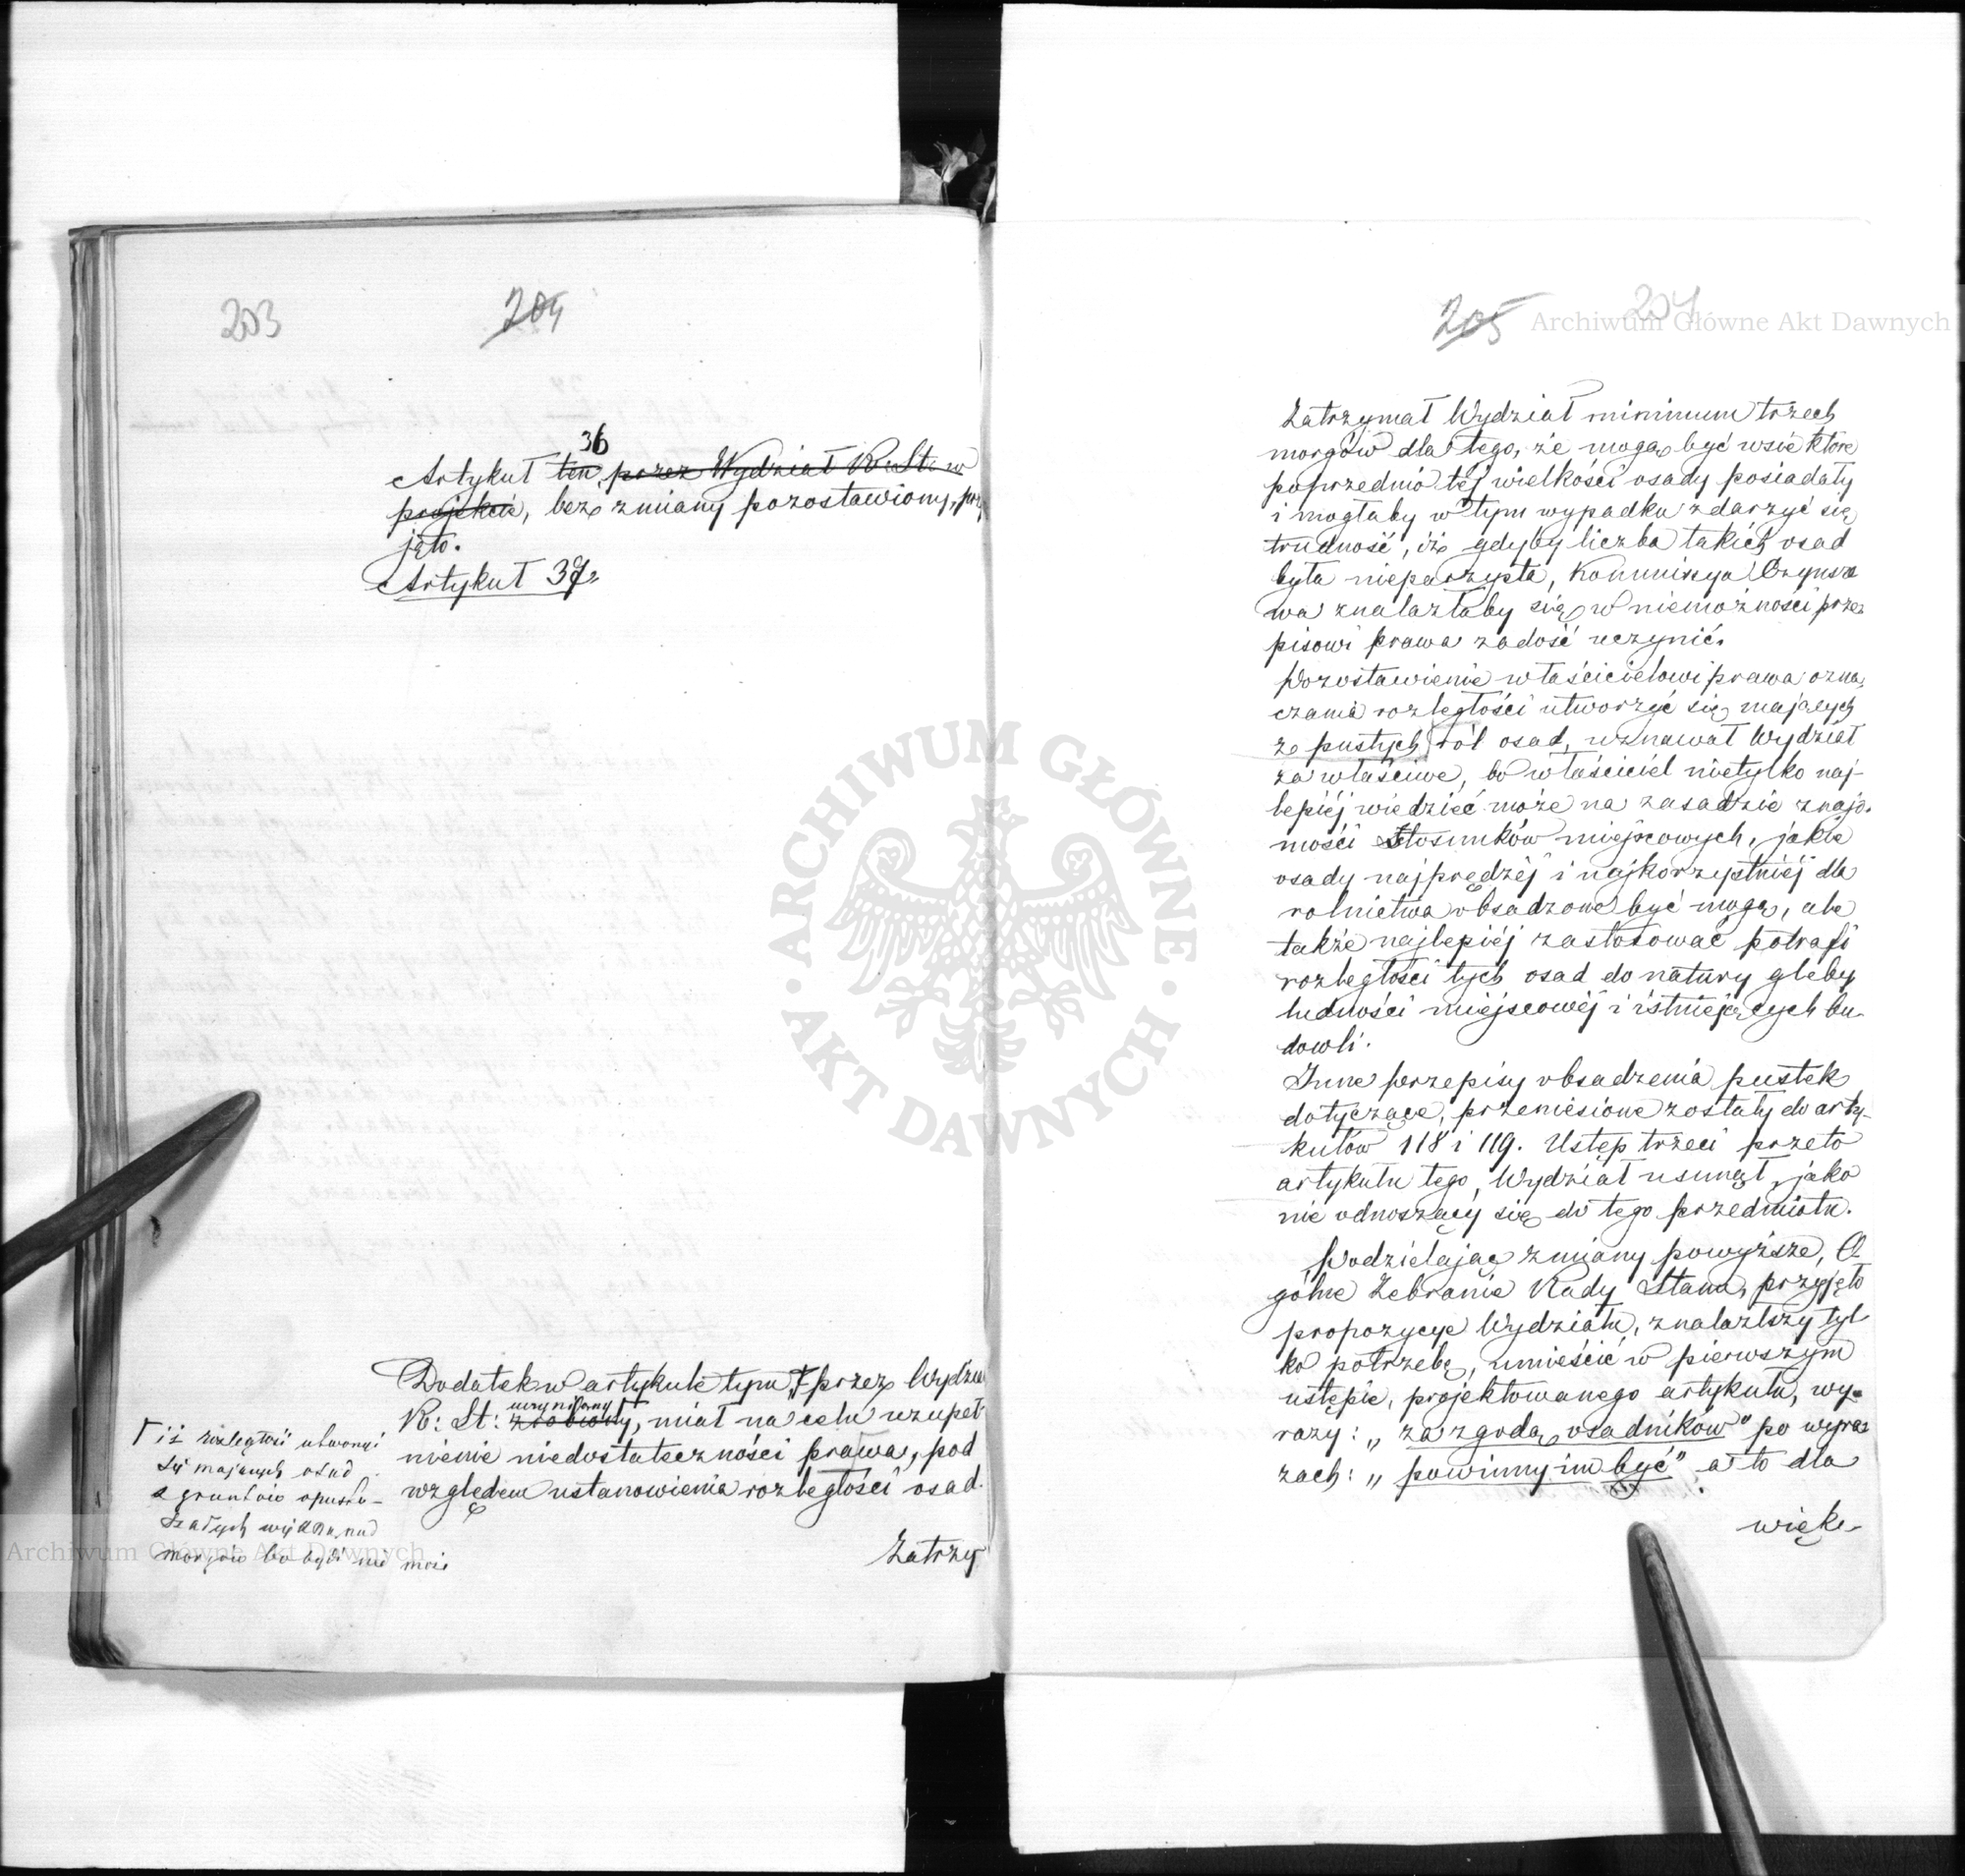 203
204
36
Artykuł ten, przez Wydział R. St. w
projekcie, bez zmiany pozostawiony, przy
jęto.
Artykuł 37.
Dodatek w artykule tym Γ przez Wydział
uczyniony
R: St: zrobiony, miał na celu uzupeł
nienie niedostateczności prawa, pod
względem ustanowienia rozległości osad.
Γ iż rozległość utworzyć
się mających osad
z gruntów opusto-
szałych
morgów bo być nie może
Zatrzy
205
204
Archiwum Główne Akt Dawnych
Zatrzymał Wydział minimum trzech
morgów dla tego, że mogą być wsie które
poprzednio tej wielkości osady posiadały
i mogłaby w tym wypadku zdarzyć się
trudność, iż gdyby liczba takich osad
była nieparzysta, Kommissya Czynszo
wa znalazłaby się w niemożności prze
pisowi prawa zadość uczynić.
Pozostawienie właścicielowi prawa ozna,
czania rozległości utworzyć się mających
z pustych ról osad, uznawał Wydział
za właściwe, bo właściciel nietylko naj-
lepiéj wiedzieć może na zasadzie znajo.
mości stosunków miejscowych, jakie
osady najprędzéj i najkorzystniéj dla
rolnictwa obsadzone być mogą, ale
także najlepiéj zastosować potrafi
rozległości tych osad do natury gleby
ludności miejscowéj i istniejących bu-
dowli.
Inne przepisy obsadzenia pustek
dotyczące, przeniesione zostały do arty-
kułów 118 i 119. Ustęp trzeci przeto
artykułu tego, Wydział usunął, jako
nie odnoszący się do tego przedmiotu.
Podzielając zmiany powyższe, O-
gólne Zebranie Rady Stanu, przyjęło
propozycye Wydziału, znalazłszy tyl
ko potrzebę, umieścić w pierwszym
ustępie, projektowanego artykułu, wy-
razy: „za zgodą osadników" po wyra
zach: „powinny im być" a to dla
więk-
ARCHIWUM GŁÓWNE
AKT DAWNYCH
Archiwum Główne Akt Dawnych